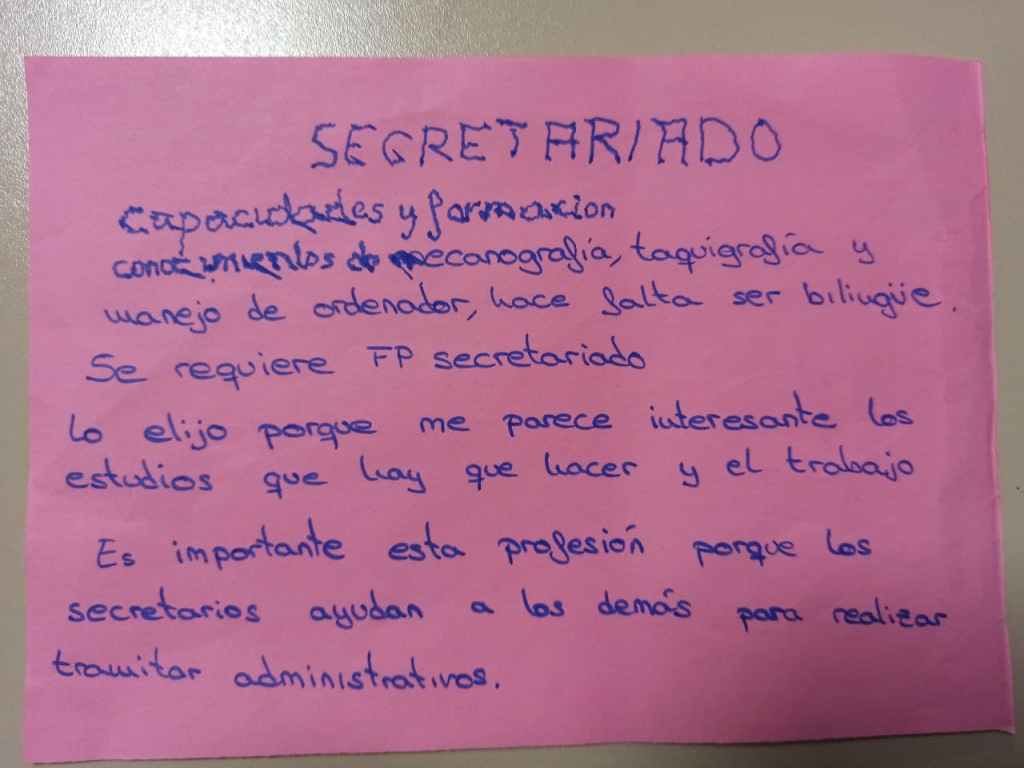 SEGRETARIADO
Capacidades y formaxion
conocimientos de mecanografía, taquigrafía y
manejo de ordenador, hace falta ser bilingüe.
Se requiere FP secretariado
Lo elijo porque me parece interesante los
estudios que hay que hacer y el trabajo
Es importante esta profesión porque los
secretarios ayudan a los demás para realizar
tramitar administrativos.